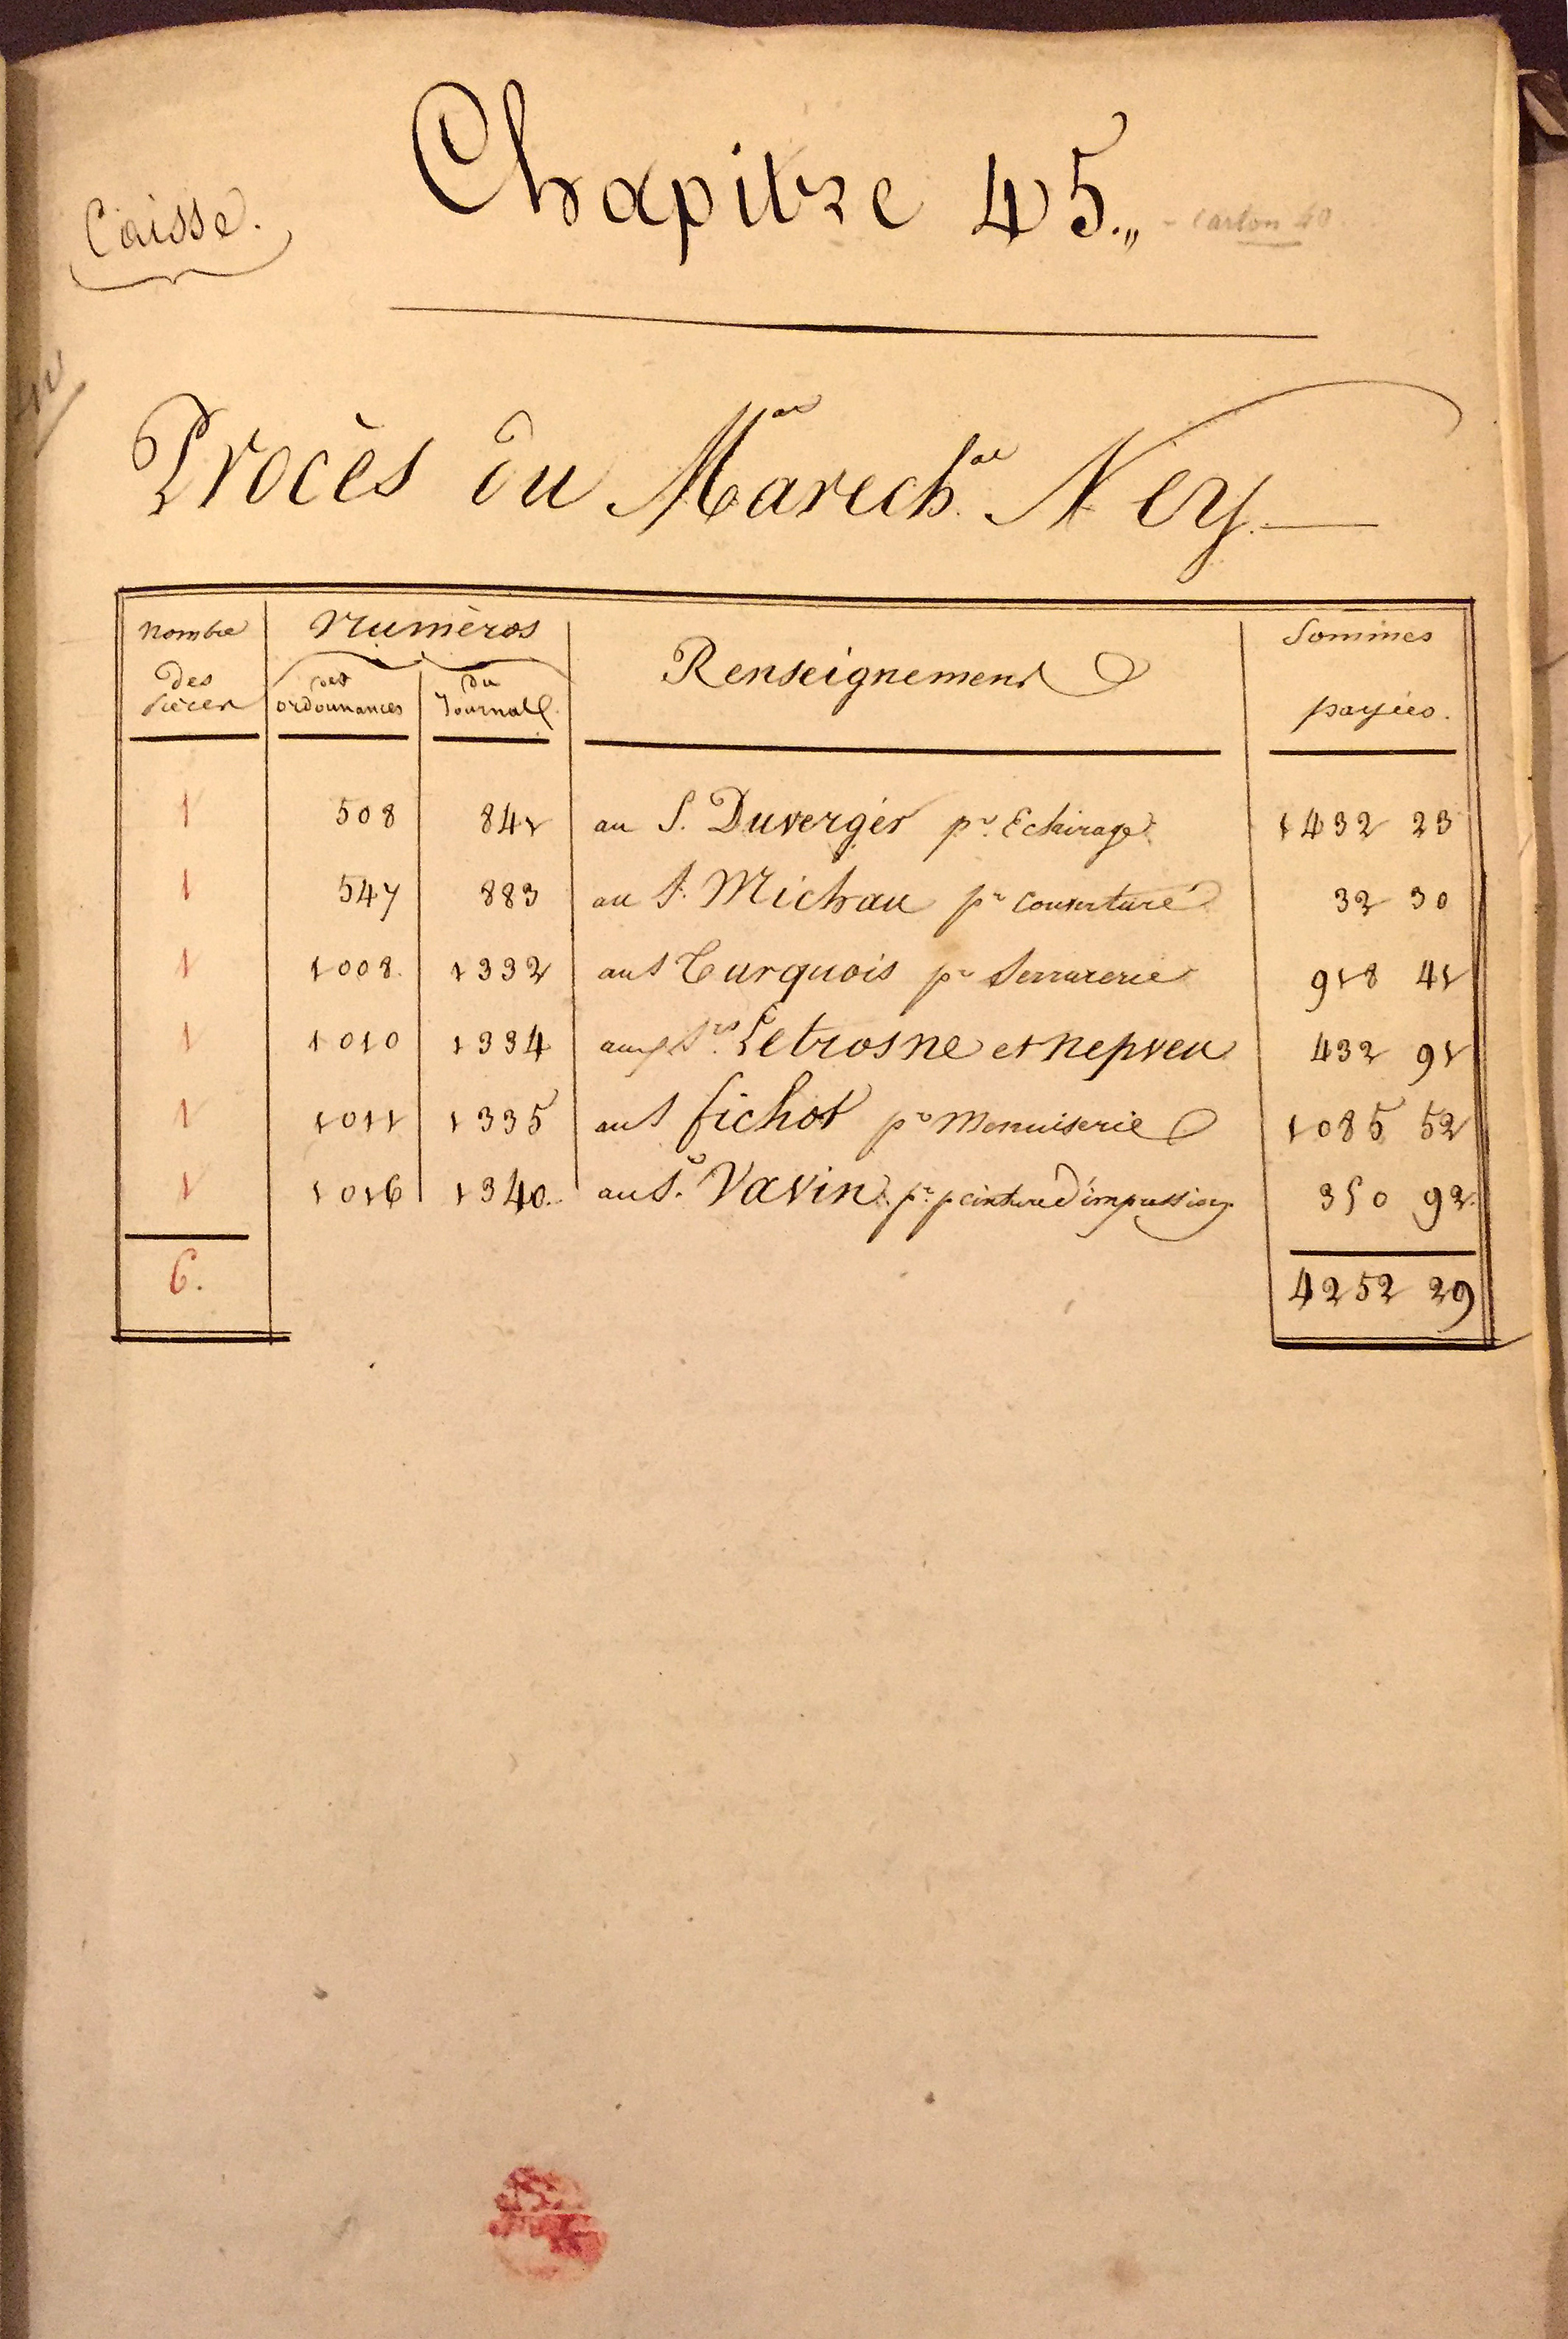 Caisse.
Chapitre 45.,, - Carton 40.
Procès du Marech.al Ney
Nombre des Pièces
Numèros
des ordonnances
du Journal.
Renseignemens
Sommes payées.
1 508 841 au S. Duverger pr. Eclairage 1432 23
1 547 883 au S. Michau pr couverture 32 30
1 1008. 1332 au S Turquois pr Serrurerie 918 41
1 1010 1334 aux Srs. Letrosne et Nepveu 432 91
1 1011 1335 au S fichot pr Menuiserie 1085 52
1 1016 1340. au S. Vavin pr. peinture d'impression 350 92.
6. 4252 29